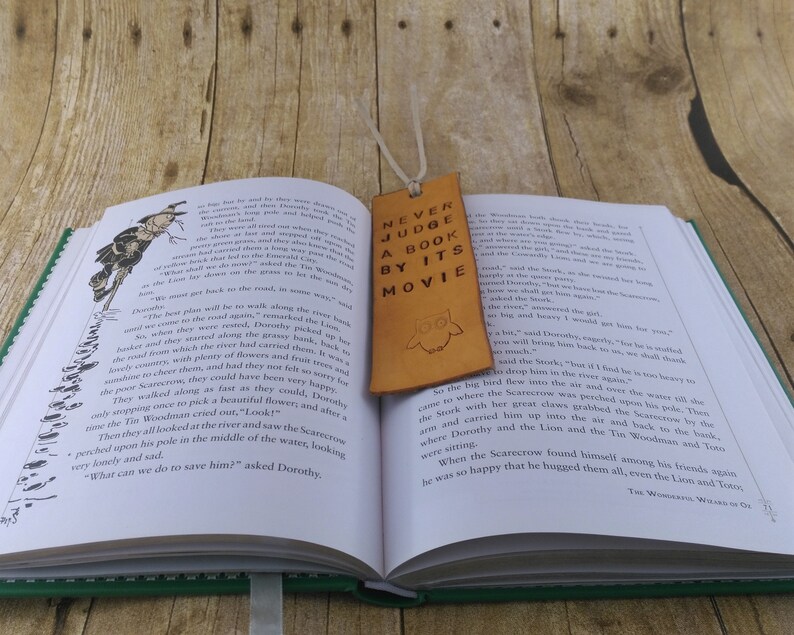 so big; but by and by they were drawn out of
the current, and then Dorothy took the Tin
Woodman's long pole and helped push the
raft to the land.
They were all tired out when they reached
the shore at last and stepped off upon the
pretty green grass, and they also knew that the
stream had carried them a long way past the road
of yellow brick that led to the Emerald City.
"What shall we do now?" asked the Tin Woodman,
as the Lion lay down on the grass to let the sun dry
him.
"We must get back to the road, in some way," said
Dorothy.
"The best plan will be to walk along the river bank
until we come to the road again," remarked the Lion.
So, when they were rested, Dorothy picked up her
basket and they started along the grassy bank, back to
the road from which the river had carried them. It was a
lovely country, with plenty of flowers and fruit trees and
sunshine to cheer them, and had they not felt so sorry for
the poor Scarecrow, they could have been very happy.
They walked along as fast as they could, Dorothy
only stopping once to pick a beautiful flower; and after a
time the Tin Woodman cried out, "Look!"
Then they all looked at the river and saw the Scarecrow
perched upon his pole in the middle of the water, looking
very lonely and sad.
"What can we do to save him?" asked Dorothy.
NEVER
JUDGE
A BOOK
BY ITS
MOVIE
the Woodman both shook their heads, for
So they sat down upon the bank and gazed
Scarecrow until a Stork flew by, which, seeing
at the water's edge.
and where are you going?" asked the Stork.
answered the girl, "and these are my friends,
and the Cowardly Lion; and we are going to
road," said the Stork, as she twisted her long
sharply at the queer party.
returned Dorothy, "but we have lost the Scarecrow,
how we shall get him again."
asked the Stork.
the river," answered the girl.
so big and heavy I would get him for you,"
a bit," said Dorothy, eagerly, "for he is stuffed
you will bring him back to us, we shall thank
so much."
said the Stork; "but if I find he is too heavy to
drop him in the river again."
So the big bird flew into the air and over the water till she
came to where the Scarecrow was perched upon his pole. Then
the Stork with her great claws grabbed the Scarecrow by the
arm and carried him up into the air and back to the bank,
where Dorothy and the Lion and the Tin Woodman and Toto
were sitting.
When the Scarecrow found himself among his friends again
he was so happy that he hugged them all, even the Lion and Toto;
THE WONDERFUL WIZARD OF OZ
71